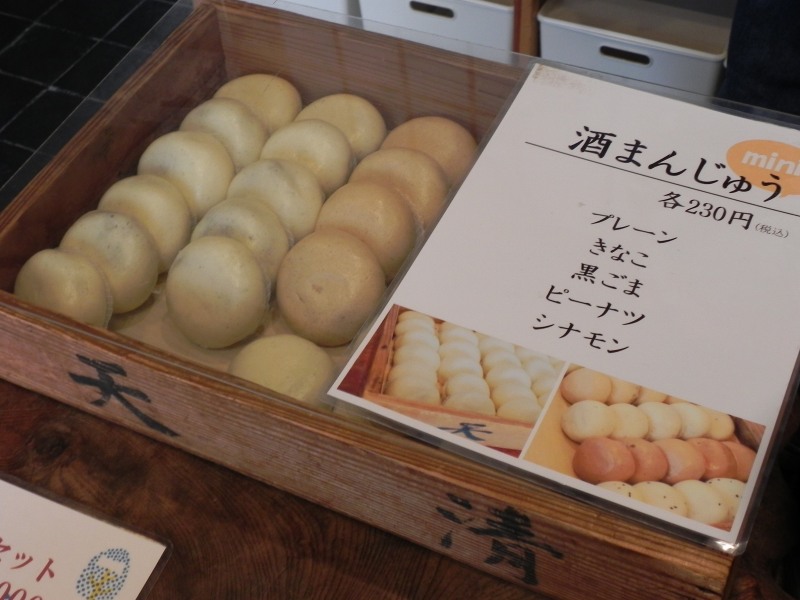 酒まんじゅう
mini
各230円(税込)
プレーン
きなこ
黒ごま
ピーナツ
シナモン
天
天
清
セット